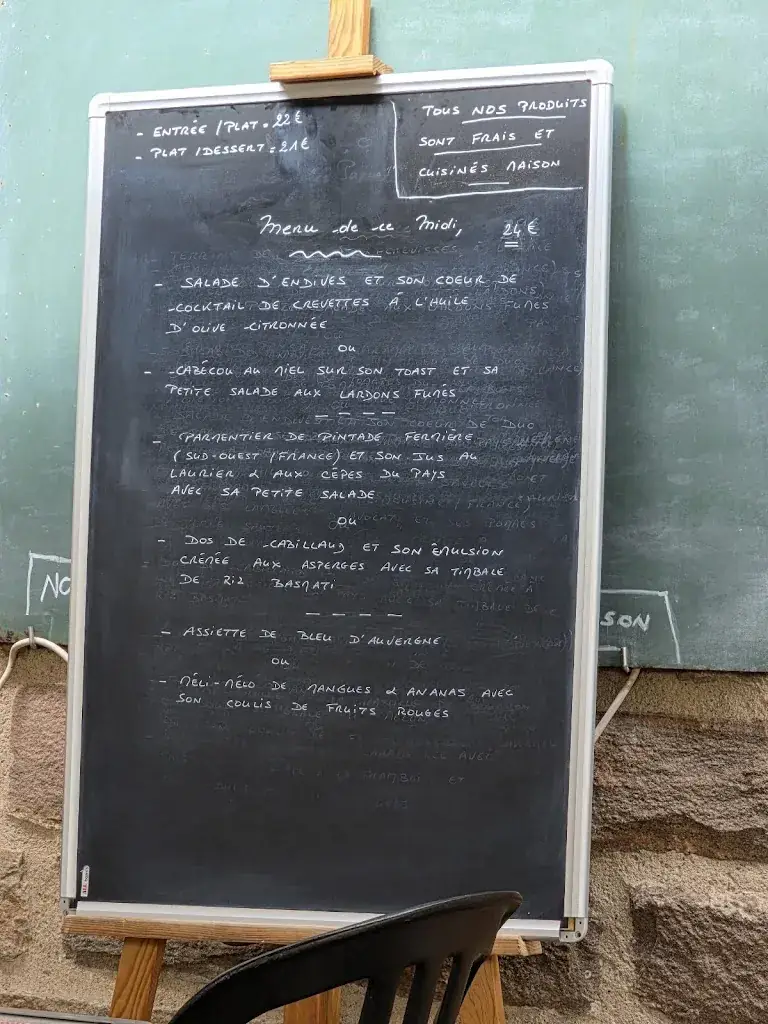 - ENTRÉE / PLAT = 22€
- PLAT / DESSERT = 21€
TOUS NOS PRODUITS
SONT FRAIS ET
CUISINÉS MAISON
Menu de ce Midi, 24€
- SALADE D'ENDIVES ET SON COEUR DE
COCKTAIL DE CREVETTES Á L'HUILE
D'OLIVE CITRONNÉE
OU
- CABÉCOU AU MIEL SUR SON TOAST ET SA
PETITE SALADE AUX LARDONS FUMÉS
- PARMENTIER DE PINTADE FERMIÈRE
(SUD-OUEST / FRANCE) ET SON JUS AU
LAURIER & AUX CÉPES DU PAYS
AVEC SA PETITE SALADE
OU
- DOS DE CABILLAUD ET SON ÉMULSION
CRÉMÉE AUX ASPERGES AVEC SA TIMBALE
DE RIZ BASMATI
- ASSIETTE DE BLEU D'AUVERGNE
OU
- MÉLI-MÉLO DE MANGUES & ANANAS AVEC
SON COULIS DE FRUITS ROUGES
NO
SON